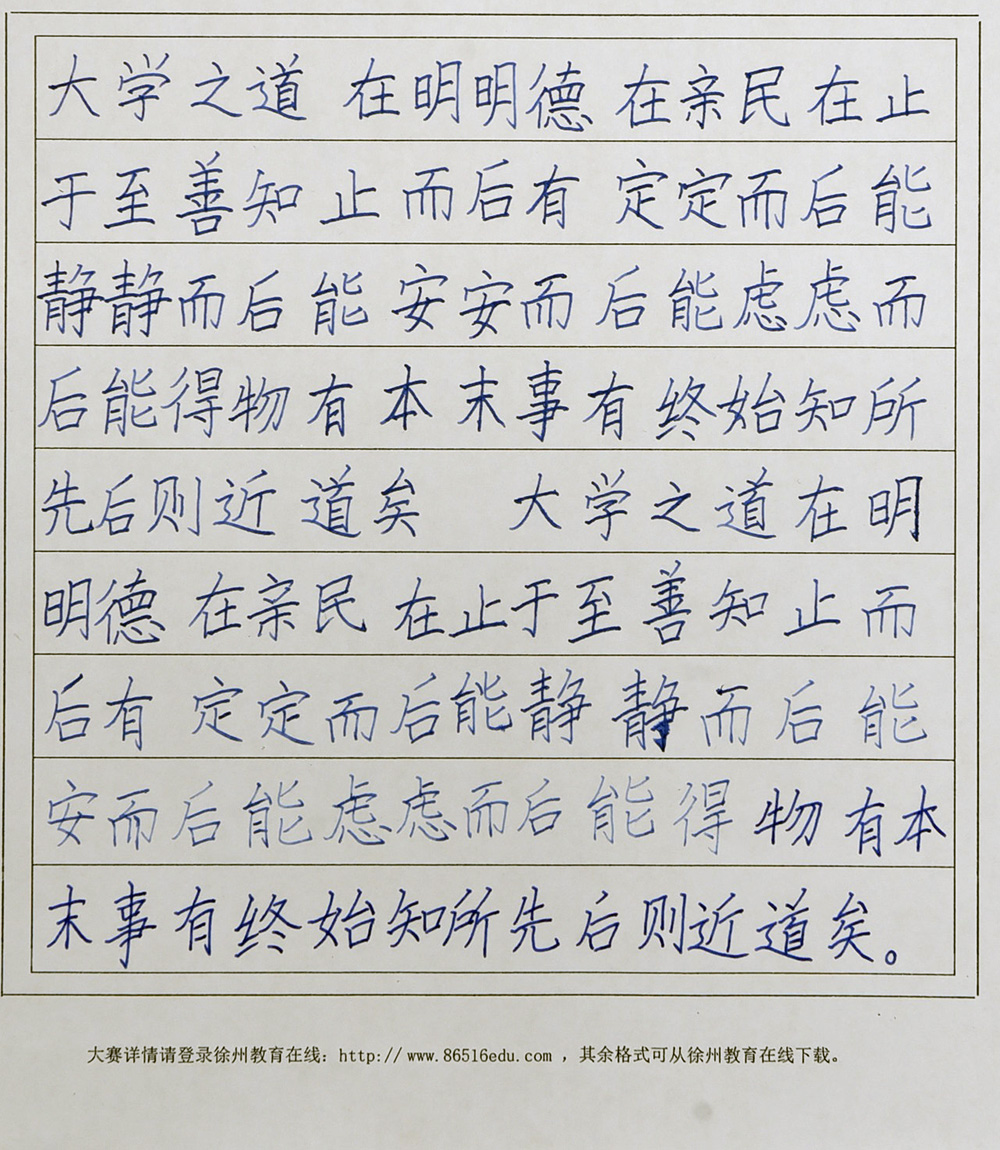 大学之道 在明明德 在亲民在止
于至善知止而后有定定而后能
静静而后能安安而后能虑虑而
后能得物有本末事有终始知所
先后则近道矣 大学之道在明
明德在亲民在止于至善知止而
后有定定而后能静静而后能
安而后能虑虑而后能得物有本
末事有终始知所先后则近道矣。
大赛详情请登录徐州教育在线：http://www.86516edu.com ，其余格式可从徐州教育在线下载。